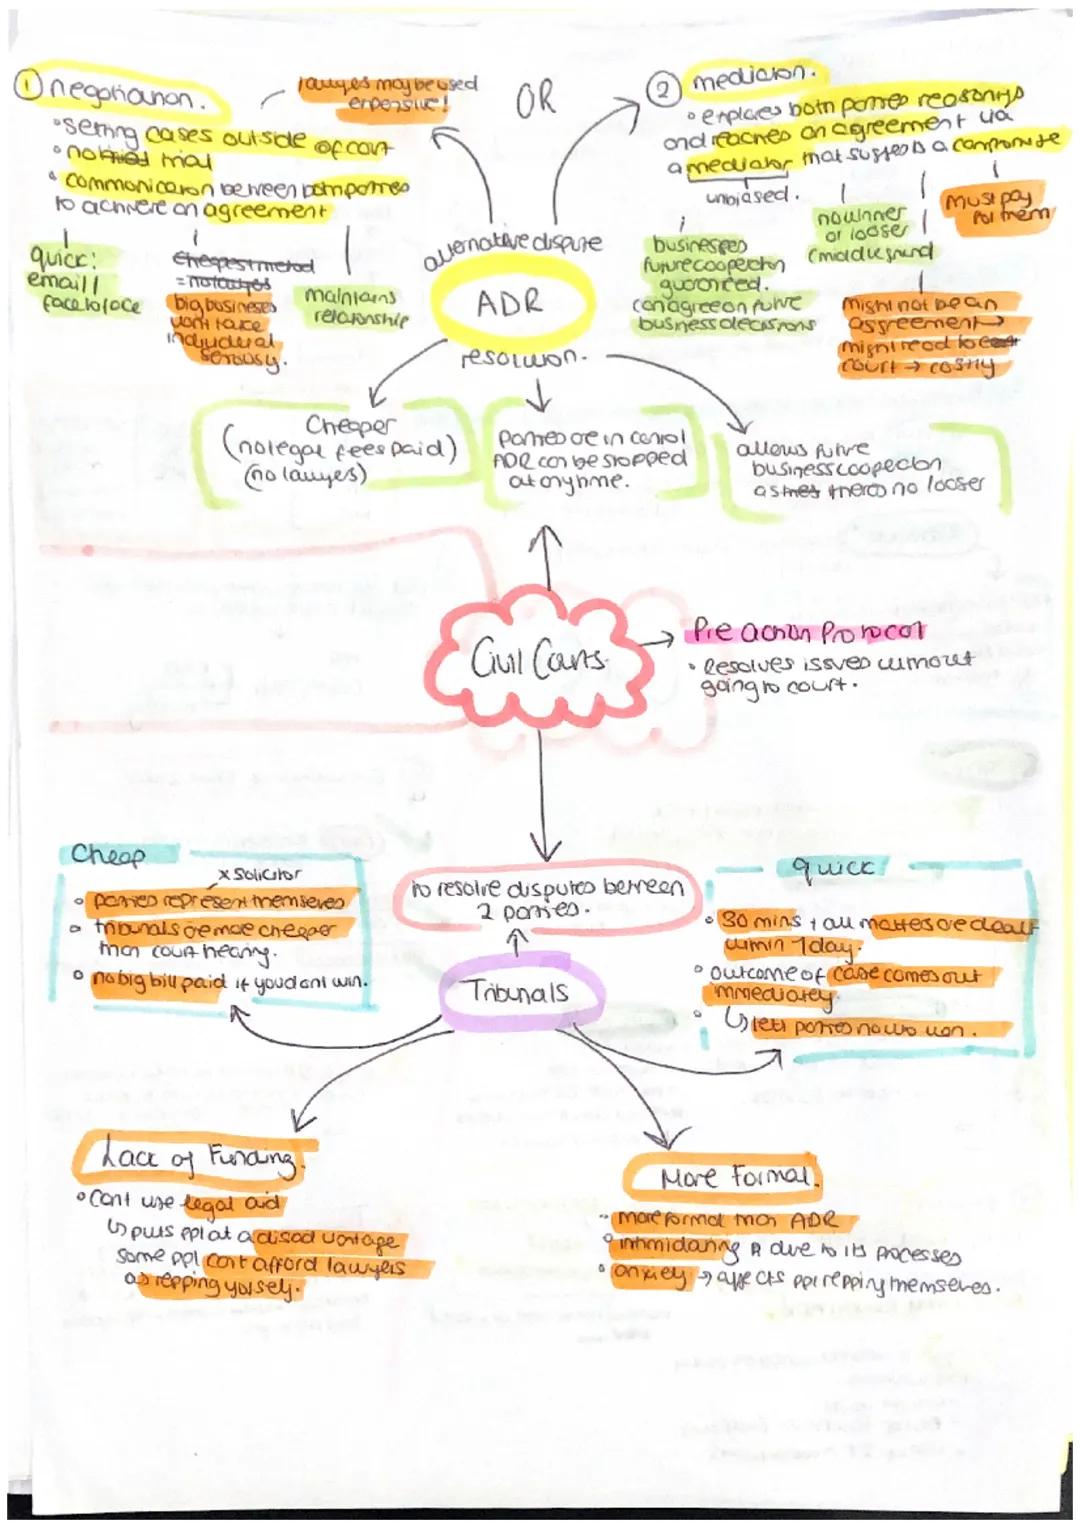 ① negotiation.
lawyers may be used
expensive!
OR
② mediation.
• settling cases outside of court
• no trial
• communication between both parties
to achieve an agreement
• explores both parties reasonings
and reaches an agreement via
a mediator that suggests a compromise
unbiased.
quick:
email /
face to face
cheapest method
= no lawyers
big businesses
wont take
individual
seriously.
maintains
relationship
alternative dispute
ADR
resolution.
businesses
future cooperation
guaranteed.
can agree on future
business decisions
no winner
or looser
(middle ground
must pay
for them
might not be an
agreement →
might lead to
court → costly
Cheaper
(no legal fees paid)
(no lawyers)
Parties are in control
ADR can be stopped
at anytime.
allows future
business cooperation
as theres no looser
Civil Courts
Pre action Protocol
• Resolves issues without
going to court.
Cheap
x solicitor
• parties represent themselves
• tribunals are more cheaper
than court hearing.
• no big bill paid if you dont win.
to resolve disputes between
2 parties.
Tribunals
quick
• 30 mins + all matters are dealt
within 1 day.
• outcome of case comes out
immediatey.
• ↳ lets parties no who won.
Lack of Funding.
• Cant use legal aid
↳ puts ppl at a disadvantage
some ppl cant afford lawyers
as repping yourself.
More Formal.
• more formal than ADR
• intimidating due to its processes
• anxiety → affects ppl repping themselves.